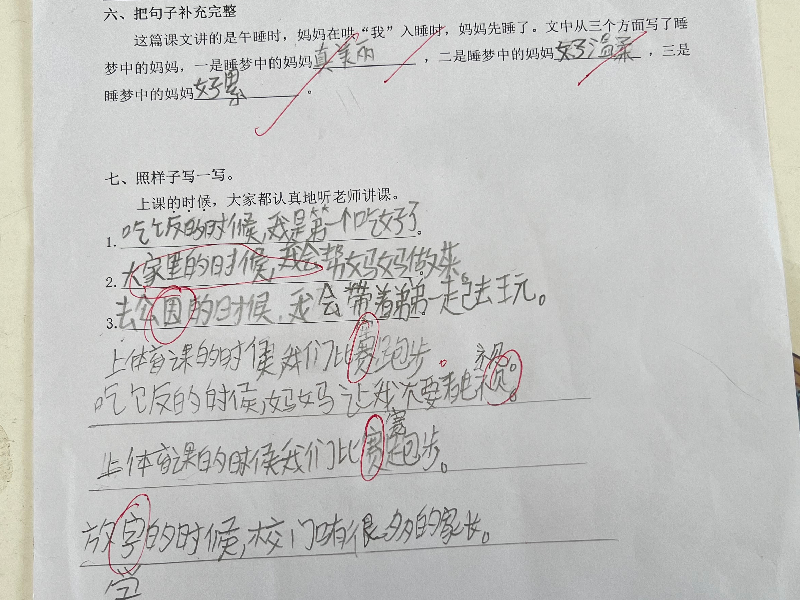 六、把句子补充完整
这篇课文讲的是午睡时，妈妈在哄“我”入睡时，妈妈先睡了。文中从三个方面写了睡
梦中的妈妈，一是睡梦中的妈妈真美丽，二是睡梦中的妈妈好温柔，三是
睡梦中的妈妈好累。
七、照样子写一写。
上课的时候，大家都认真地听老师讲课。
1. 吃饭的时候，我是第一个吃好了。
2. 大家里的时候，我会帮妈妈做来
3. 去公园的时候，我会带着弟弟一起去玩。
上体育课的时候，我们比赛跑步
吃饭的时候，妈妈让我不要看电视。
上体育课的时候我们比赛跑步。
放字的时候，校门口有很多的家长。
学